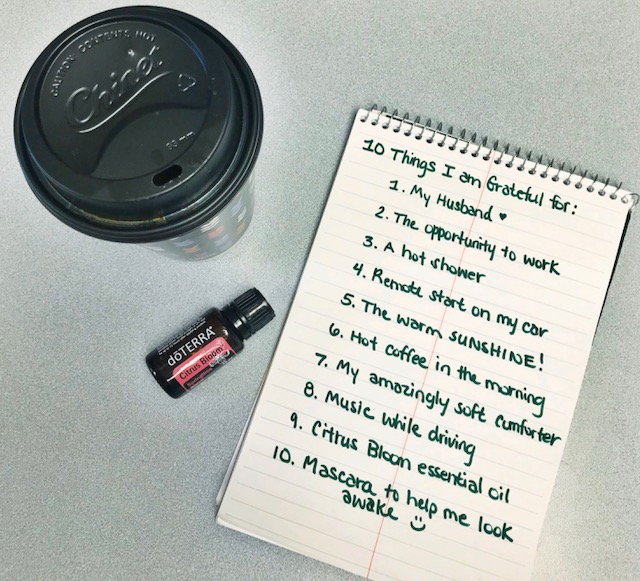 CAUTION: CONTENTS HOT
Chinet
89 mm
dōTERRA
Citrus Bloom
10 Things I am Grateful for:
1. My Husband ♥
2. The opportunity to work
3. A hot shower
4. Remote start on my car
5. The warm SUNSHINE!
6. Hot coffee in the morning
7. My amazingly soft comforter
8. Music while driving
9. Citrus Bloom essential oil
10. Mascara to help me look
awake ☺